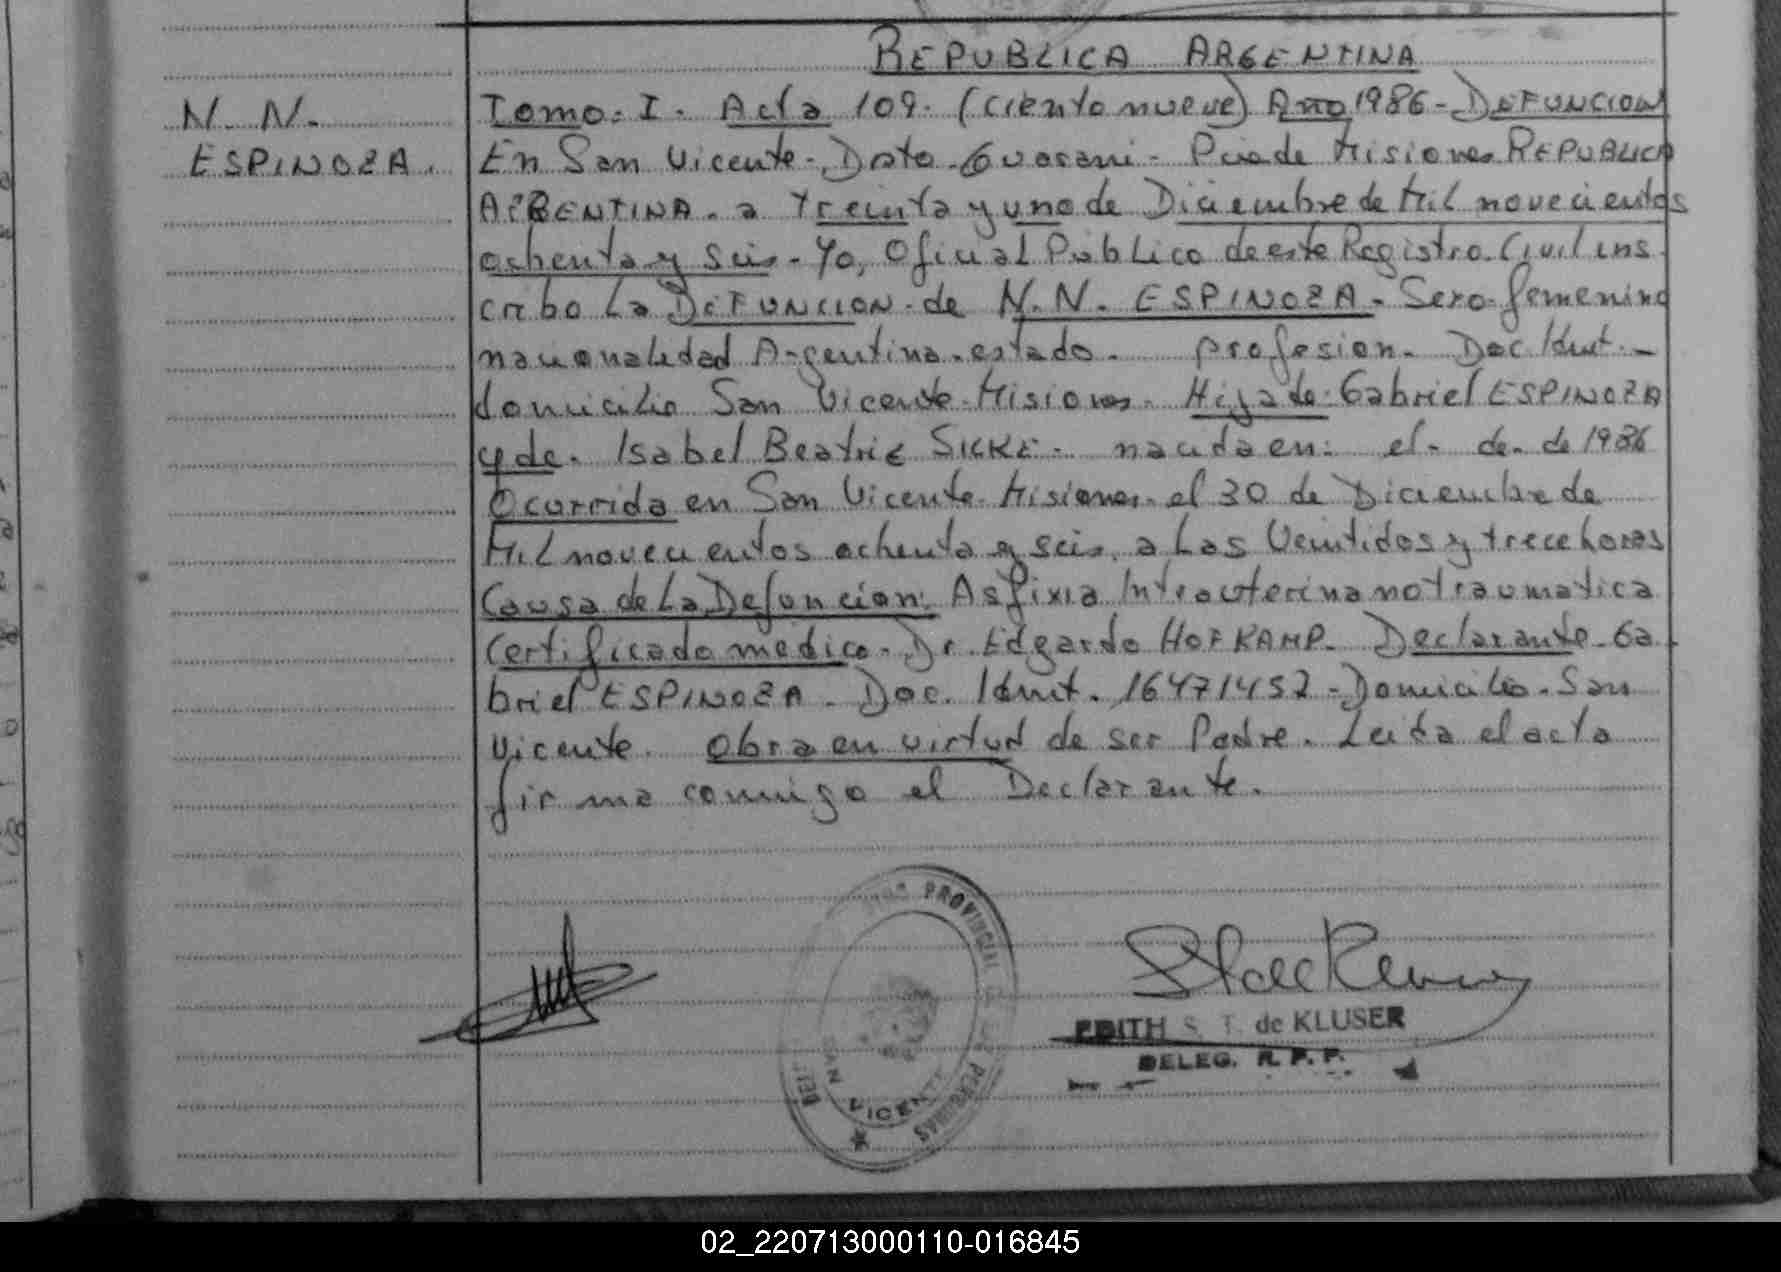 REPUBLICA ARGENTINA
N. N.
ESPINOZA.
Tomo. I. Acta 109. (ciento nueve) Año 1986 - DEFUNCION
En San Vicente. Dpto. Guarani. Pcia de Misiones REPUBLICA
ARGENTINA. a treinta y uno de Diciembre de Mil novecientos
ochenta y seis. Yo, Oficial Público de este Registro. Civil ins
cribo la DEFUNCION de N. N. ESPINOZA. Sexo femenino
nacionalidad Argentina. estado. profesion. Doc. Ident. -
domicilio San Vicente. Misiones. Hija de: Gabriel ESPINOZA
y de. Isabel Beatriz SICKE. nacida en: el. de. de 1986
Ocurrida en San Vicente. Misiones. el 30 de Diciembre de
Mil novecientos ochenta y seis, a las Veintidos y trece horas
Causa de La Defuncion: Asfixia Intrauterina no traumatica
Certificado medico. Dr. Edgardo HOFKAMP. Declarante. Ga
briel ESPINOZA. Doc. Ident. 16471452 - Domicilio. San
Vicente. Obra en virtud de ser Padre. Leida el acta
firma conmigo el Declarante.
PROVINCIAL DE LAS PERSONAS
SAN VICENTE
EDITH S. T. de KLUSER
DELEG. R. P. P.
02_220713000110-016845